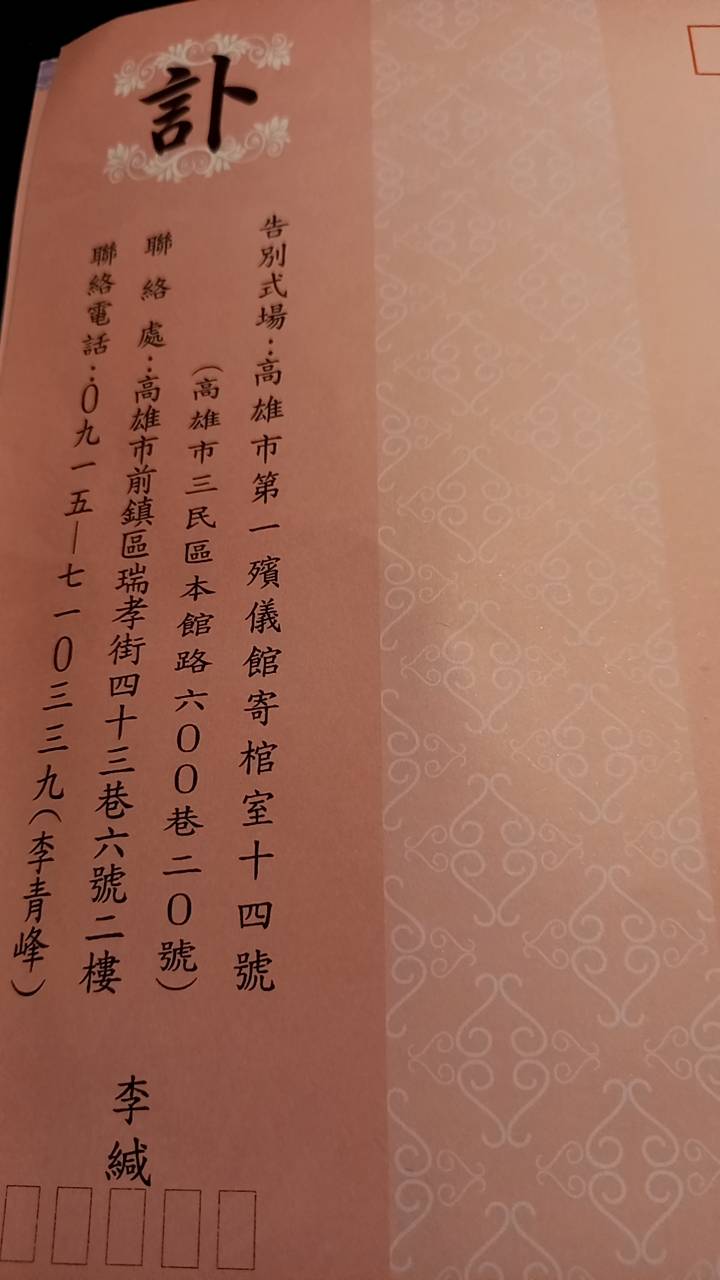 訃
告別式場：高雄市第一殯儀館寄棺室十四號
（高雄市三民區本館路六００巷二０號）
聯絡處：高雄市前鎮區瑞孝街四十三巷六號二樓
聯絡電話：０九一五－七一０三三九（李青峰）
李緘